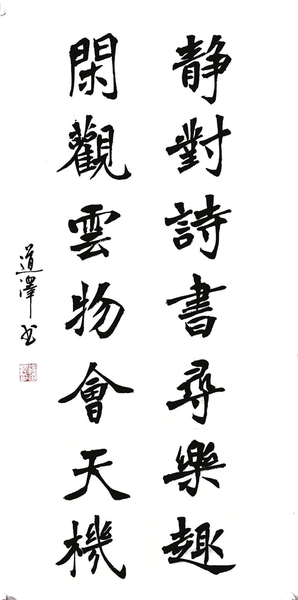 静對詩書尋樂趣
閑觀雲物會天機
道澤书